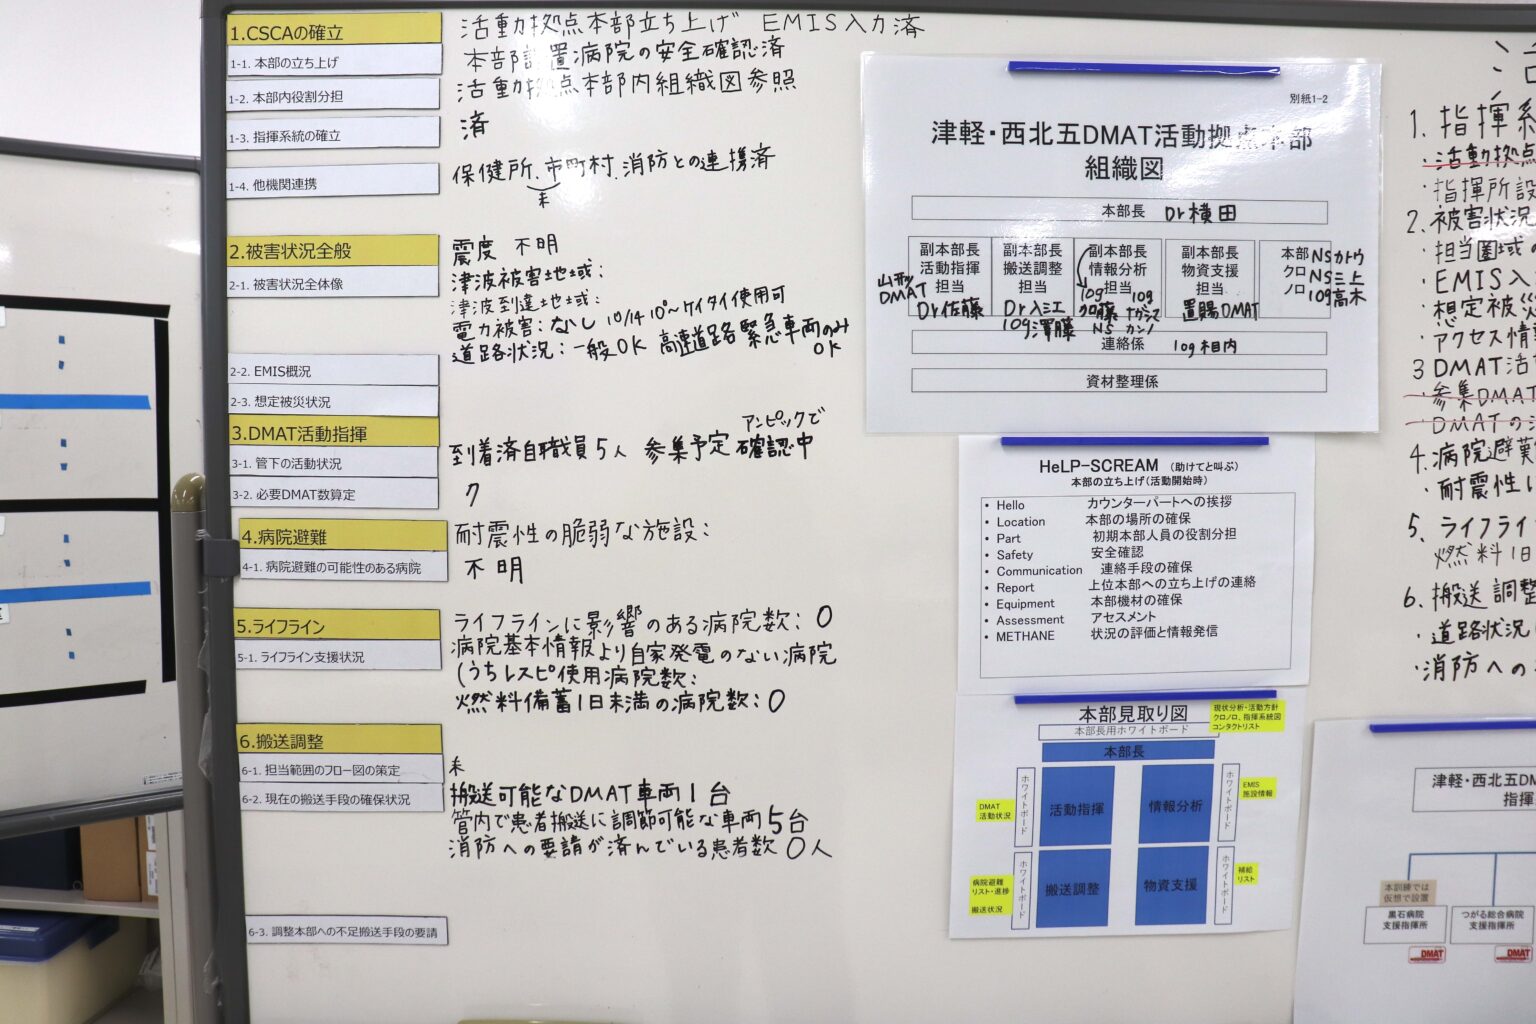 1.CSCAの確立
活動拠点本部立ち上げ EMIS入力済
1-1. 本部の立ち上げ
本部設置病院の安全確認済
1-2. 本部内役割分担
活動拠点本部内組織図参照
1-3. 指揮系統の確立
済
1-4. 他機関連携
保健所、市町村、消防との連携済
未
2.被害状況全般
震度 不明
2-1. 被害状況全体像
津波被害地域:
津波到達地域:
電力被害: なし 10/14 10°~ケイタイ使用可
道路状況: 一般OK 高速道路緊急車両のみ
OK
2-2. EMIS概況
2-3. 想定被災状況
3.DMAT活動指揮
アンピックで
3-1. 管下の活動状況
到着済自職員5人 参集予定 確認中
3-2. 必要DMAT数算定
4.病院避難
耐震性の脆弱な施設:
4-1. 病院避難の可能性のある病院
不明
5.ライフライン
ライフラインに影響のある病院数: 0
5-1. ライフライン支援状況
病院基本情報より自家発電のない病院
(うちレスピ使用病院数:
燃料備蓄1日未満の病院数: 0
6.搬送調整
6-1. 担当範囲のフロー図の策定
未
6-2. 現在の搬送手段の確保状況
搬送可能なDMAT車両1台
管内で患者搬送に調節可能な車両5台
消防への要請が済んでいる患者数 0人
6-3. 調整本部への不足搬送手段の要請
別紙1-2
津軽・西北五DMAT活動拠点本部
組織図
本部長 Dr横田
副本部長
活動指揮
担当
山形
DMAT
Dr佐藤
副本部長
搬送調整
担当
Dr入江
log澤藤
副本部長
情報分析
担当
log
log
NS カンノ
副本部長
物資支援
担当
置賜DMAT
本部
クロ
ノロ
NSカトウ
NS三上
log高木
連絡係 log相内
資材整理係
HeLP-SCREAM (助けてと叫ぶ)
本部の立ち上げ(活動開始時)
• Hello カウンターパートへの挨拶
• Location 本部の場所の確保
• Part 初期本部人員の役割分担
• Safety 安全確認
• Communication 連絡手段の確保
• Report 上位本部への立ち上げの連絡
• Equipment 本部機材の確保
• Assessment アセスメント
• METHANE 状況の評価と情報発信
本部見取り図
現状分析・活動方針
クロノロ、指揮系統図
コンタクトリスト
本部長用ホワイトボード
本部長
DMAT
活動状況
ホワイトボード
活動指揮
情報分析
ホワイトボード
EMIS
施設情報
病院避難
リスト・進捗
搬送状況
ホワイトボード
搬送調整
物資支援
ホワイトボード
補給
リスト
1. 指揮系
・活動拠点
・指揮所設
2. 被害状況
・担当圏域の
・EMIS入
・想定被災
・アクセス情
3 DMAT活
・参集DMAT
・DMATの
4. 病院避難
・耐震性
5. ライフライ
燃料1日
6. 搬送調整
・道路状況
・消防への
津軽・西北五D
指揮
本訓練では
仮想で設置
黒石病院
支援指揮所
DMAT
つがる総合病院
支援指揮所
DMAT